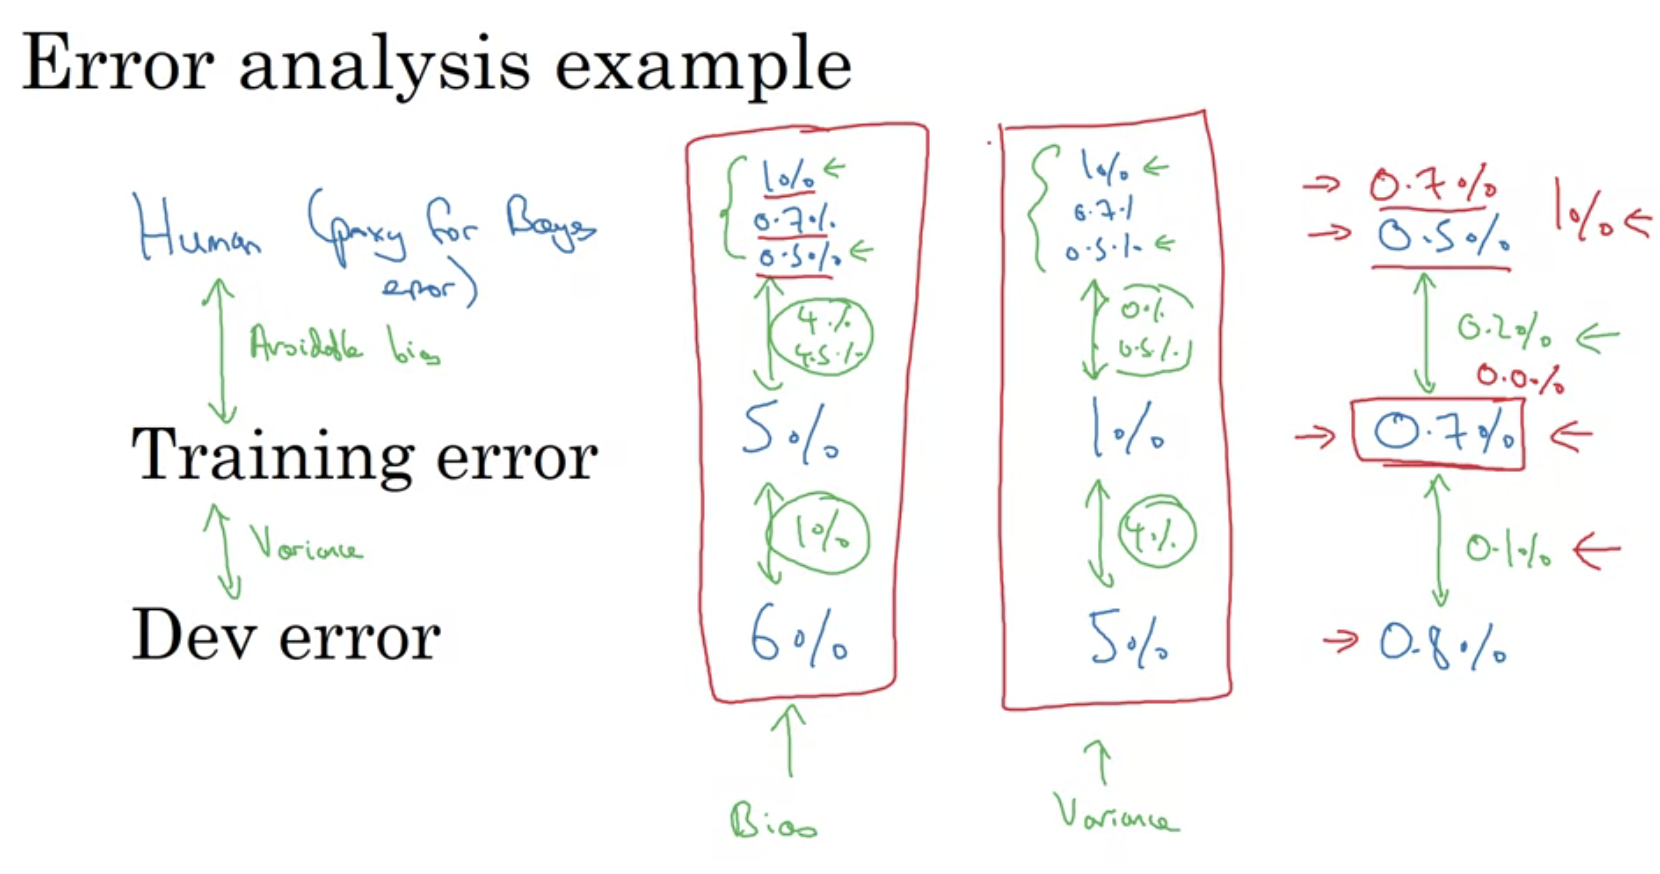 Error analysis example
Human (proxy for Bayes
error)
Avoidable bias
Training error
Variance
Dev error
1%
0.7%
0.5%
4%
4.5%
5%
1%
6%
Bias
1%
0.7%
0.5%
0%
0.5%
1%
4%
5%
Variance
0.7% 1%
0.5%
0.2%
0.0%
0.7%
0.1%
0.8%